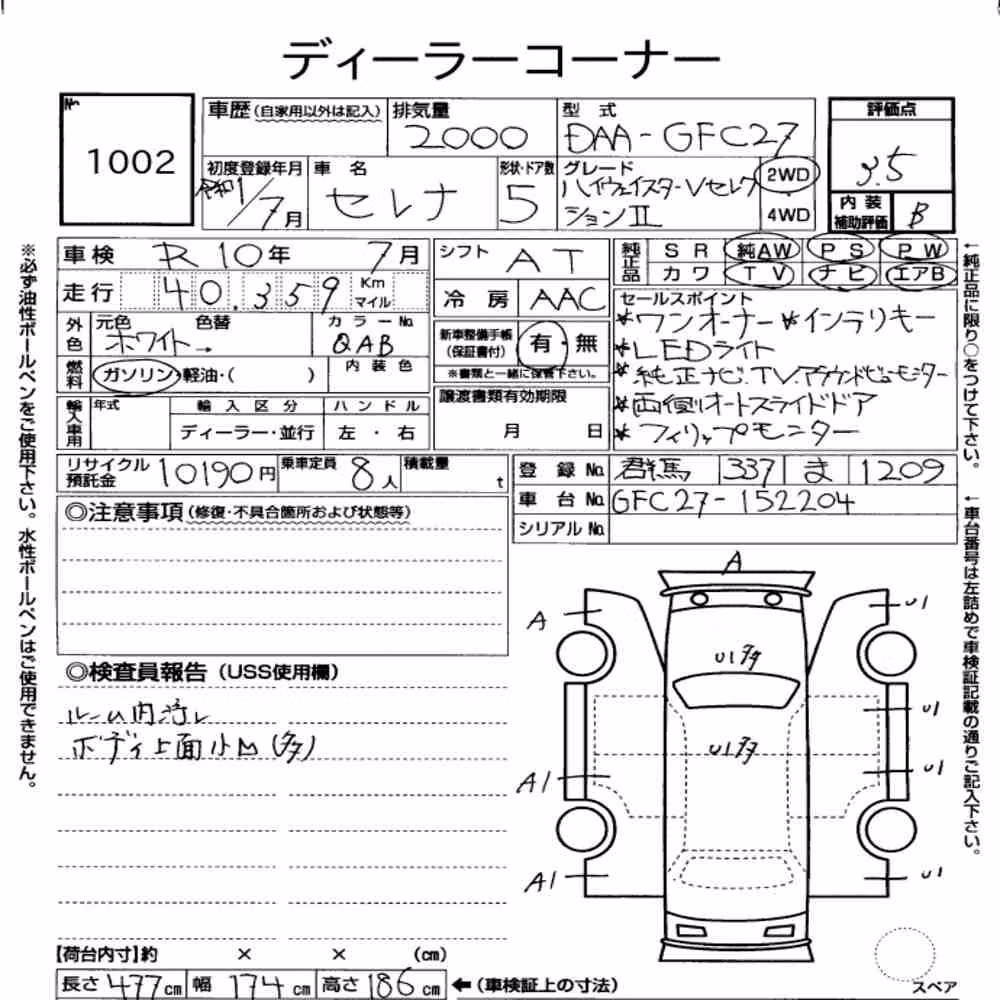 ディーラーコーナー
№
1002
車歴(自家用以外は記入)
排気量
2000
型 式
DAA-GFC27
評価点
3.5
初度登録年月
令和1/7月
車 名
セレナ
形状・ドア数
5
グレード
ハイウェイスターVセレク
ションⅡ
2WD
4WD
内 装
補助評価
B
車検 R10年 7月
シフト AT
純正品
SR 純AW PS PW
カワ TV ナビ エアB
走行 40,359 Km マイル
冷房 AAC
セールスポイント
*ワンオーナー *インテリキー
*LEDライト
*純正ナビ.TV.アラウンドビューモニター
*両側オートスライドドア
*フィリップモニター
外色 元色 色替
ホワイト→
カラーNo.
QAB
新車整備手帳
(保証書付)
有・無
※書類と一緒に保管下さい。
燃料 ガソリン・軽油・( )
内装色
譲渡書類有効期限
月 日
輸入車用 年式
輸入区分
ディーラー・並行
ハンドル
左・右
リサイクル
預託金
10190円
乗車定員
8人
積載量
t
登録No. 群馬 337 ま 1209
車台No. GFC27-152204
シリアルNo.
◎注意事項(修復・不具合箇所および状態等)
◎検査員報告(USS使用欄)
ルーム内汚レ
ボディ上面小凹(多)
A
A
U1
U1多
U1
U1多
A1
U1
A1
U1
【荷台内寸】約 × × (cm)
長さ477cm 幅174cm 高さ186cm ←(車検証上の寸法)
スペア
※必ず油性ボールペンをご使用下さい。水性ボールペンはご使用できません。
←純正品に限り○をつけて下さい。
←車台番号は左詰めで車検証記載の通りご記入下さい。